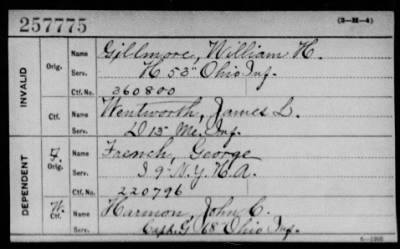 257775
(3-M-4)
INVALID
Orig.
Name Gillmore, William H.
Serv. H 53" Ohio Inf.
Ctf. No. 360800
Ctf.
Name Wentworth, James L.
Serv. D 15 Me. Inf.
DEPENDENT
F. Orig.
Name French, George
Serv. I 9" N.Y. H.A.
Ctf. No. 220796
W. Ctf.
Name Harmon, John C.
Serv. Capt. G 18 Ohio Inf.